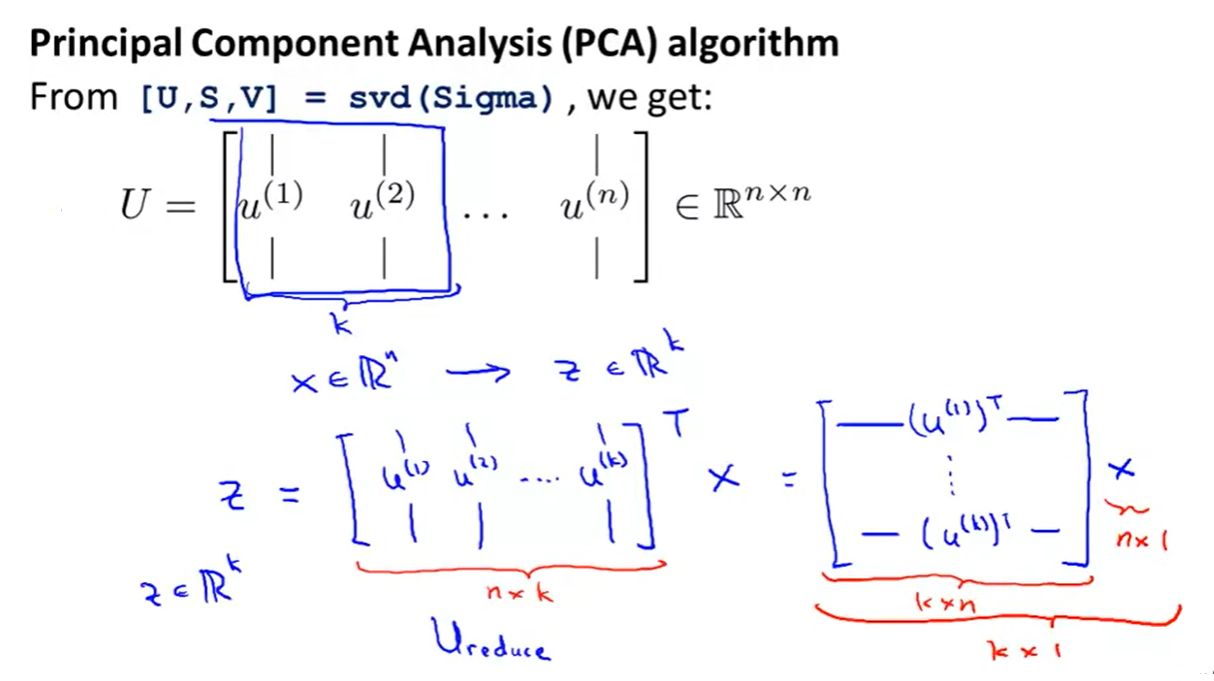 Principal Component Analysis (PCA) algorithm
From [U,S,V] = svd(Sigma), we get:
U = [ u^(1) u^(2) ... u^(n) ] ∈ ℝ^{n×n}
k
x ∈ ℝ^n → z ∈ ℝ^k
z = [ u^(1) u^(2) .... u^(k) ]^T x = [ — (u^(1))^T — ⋮ — (u^(k))^T — ] x
n×1
z ∈ ℝ^k
n×k
k×n
U_reduce
k×1